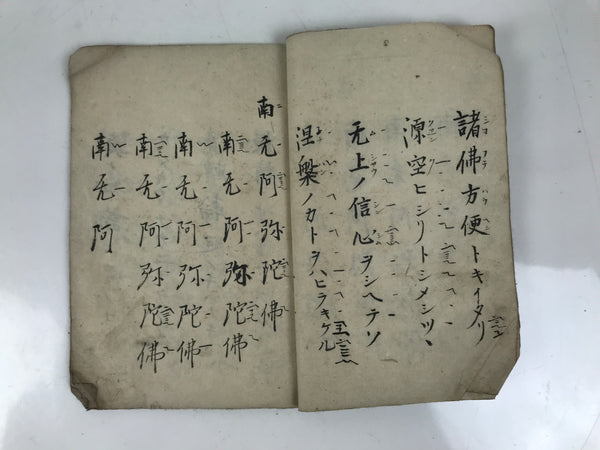 諸佛方便トキイタリ
源空ヒシリトシメシツヽ
无上ノ信心ヲシヘテソ
涅槃ノカトヲハヒラキケル
南无阿弥陀佛
南无阿弥陀佛
南无阿弥陀佛
南无阿弥陀佛
南无阿